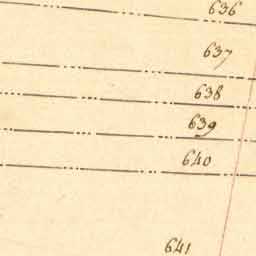 636
637
638
639
640
641